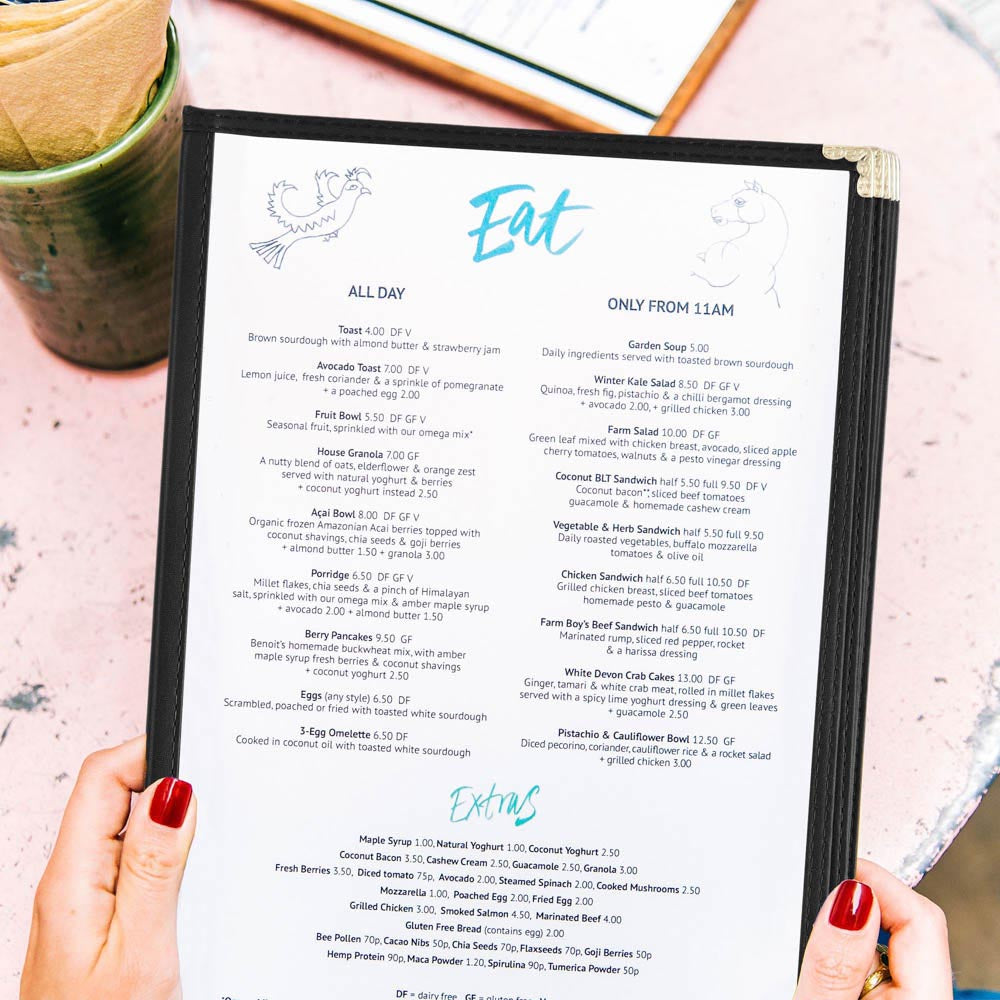 Eat
ALL DAY
Toast 4.00 DF V
Brown sourdough with almond butter & strawberry jam
Avocado Toast 7.00 DF V
Lemon juice, fresh coriander & a sprinkle of pomegranate
+ a poached egg 2.00
Fruit Bowl 5.50 DF GF V
Seasonal fruit, sprinkled with our omega mix*
House Granola 7.00 GF
A nutty blend of oats, elderflower & orange zest
served with natural yoghurt & berries
+ coconut yoghurt instead 2.50
Açai Bowl 8.00 DF GF V
Organic frozen Amazonian Acai berries topped with
coconut shavings, chia seeds & goji berries
+ almond butter 1.50 + granola 3.00
Porridge 6.50 DF GF V
Millet flakes, chia seeds & a pinch of Himalayan
salt, sprinkled with our omega mix & amber maple syrup
+ avocado 2.00 + almond butter 1.50
Berry Pancakes 9.50 GF
Benoit's homemade buckwheat mix, with amber
maple syrup fresh berries & coconut shavings
+ coconut yoghurt 2.50
Eggs (any style) 6.50 DF
Scrambled, poached or fried with toasted white sourdough
3-Egg Omelette 6.50 DF
Cooked in coconut oil with toasted white sourdough
ONLY FROM 11AM
Garden Soup 5.00
Daily ingredients served with toasted brown sourdough
Winter Kale Salad 8.50 DF GF V
Quinoa, fresh fig, pistachio & a chilli bergamot dressing
+ avocado 2.00, + grilled chicken 3.00
Farm Salad 10.00 DF GF
Green leaf mixed with chicken breast, avocado, sliced apple
cherry tomatoes, walnuts & a pesto vinegar dressing
Coconut BLT Sandwich half 5.50 full 9.50 DF V
Coconut bacon**, sliced beef tomatoes
guacamole & homemade cashew cream
Vegetable & Herb Sandwich half 5.50 full 9.50
Daily roasted vegetables, buffalo mozzarella
tomatoes & olive oil
Chicken Sandwich half 6.50 full 10.50 DF
Grilled chicken breast, sliced beef tomatoes
homemade pesto & guacamole
Farm Boy's Beef Sandwich half 6.50 full 10.50 DF
Marinated rump, sliced red pepper, rocket
& a harissa dressing
White Devon Crab Cakes 13.00 DF GF
Ginger, tamari & white crab meat, rolled in millet flakes
served with a spicy lime yoghurt dressing & green leaves
+ guacamole 2.50
Pistachio & Cauliflower Bowl 12.50 GF
Diced pecorino, coriander, cauliflower rice & a rocket salad
+ grilled chicken 3.00
Extras
Maple Syrup 1.00, Natural Yoghurt 1.00, Coconut Yoghurt 2.50
Coconut Bacon 3.50, Cashew Cream 2.50, Guacamole 2.50, Granola 3.00
Fresh Berries 3.50, Diced tomato 75p, Avocado 2.00, Steamed Spinach 2.00, Cooked Mushrooms 2.50
Mozzarella 1.00, Poached Egg 2.00, Fried Egg 2.00
Grilled Chicken 3.00, Smoked Salmon 4.50, Marinated Beef 4.00
Gluten Free Bread (contains egg) 2.00
Bee Pollen 70p, Cacao Nibs 50p, Chia Seeds 70p, Flaxseeds 70p, Goji Berries 50p
Hemp Protein 90p, Maca Powder 1.20, Spirulina 90p, Tumerica Powder 50p
DF = dairy free GF = gluten free